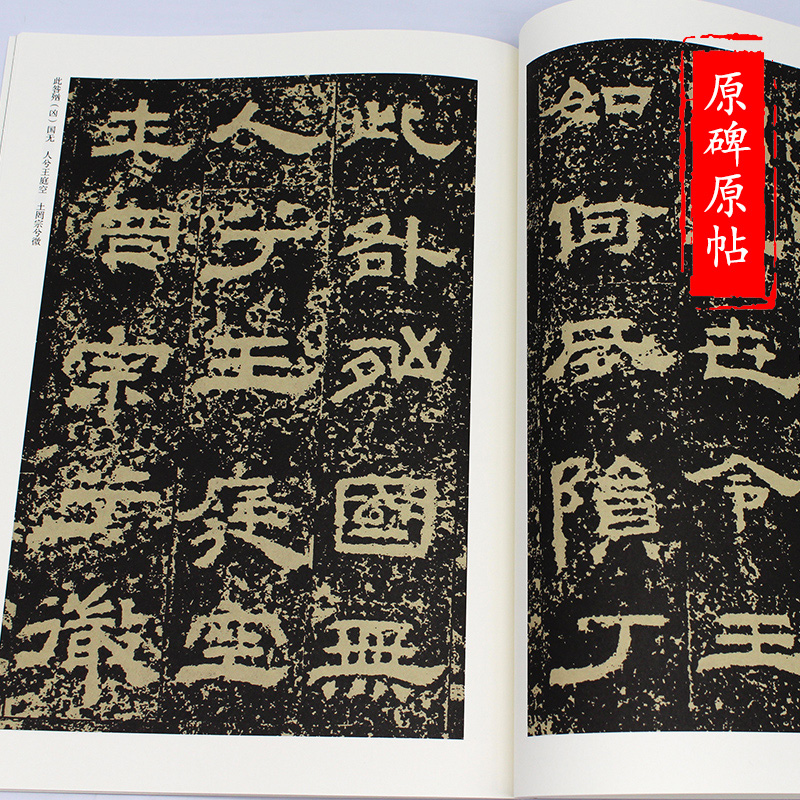 原碑原帖
世令王
如何夙隕丁
此咎國無
人兮王庭空
士罔宗兮微
此咎（凶）国无　人兮王庭空　士罔宗兮微